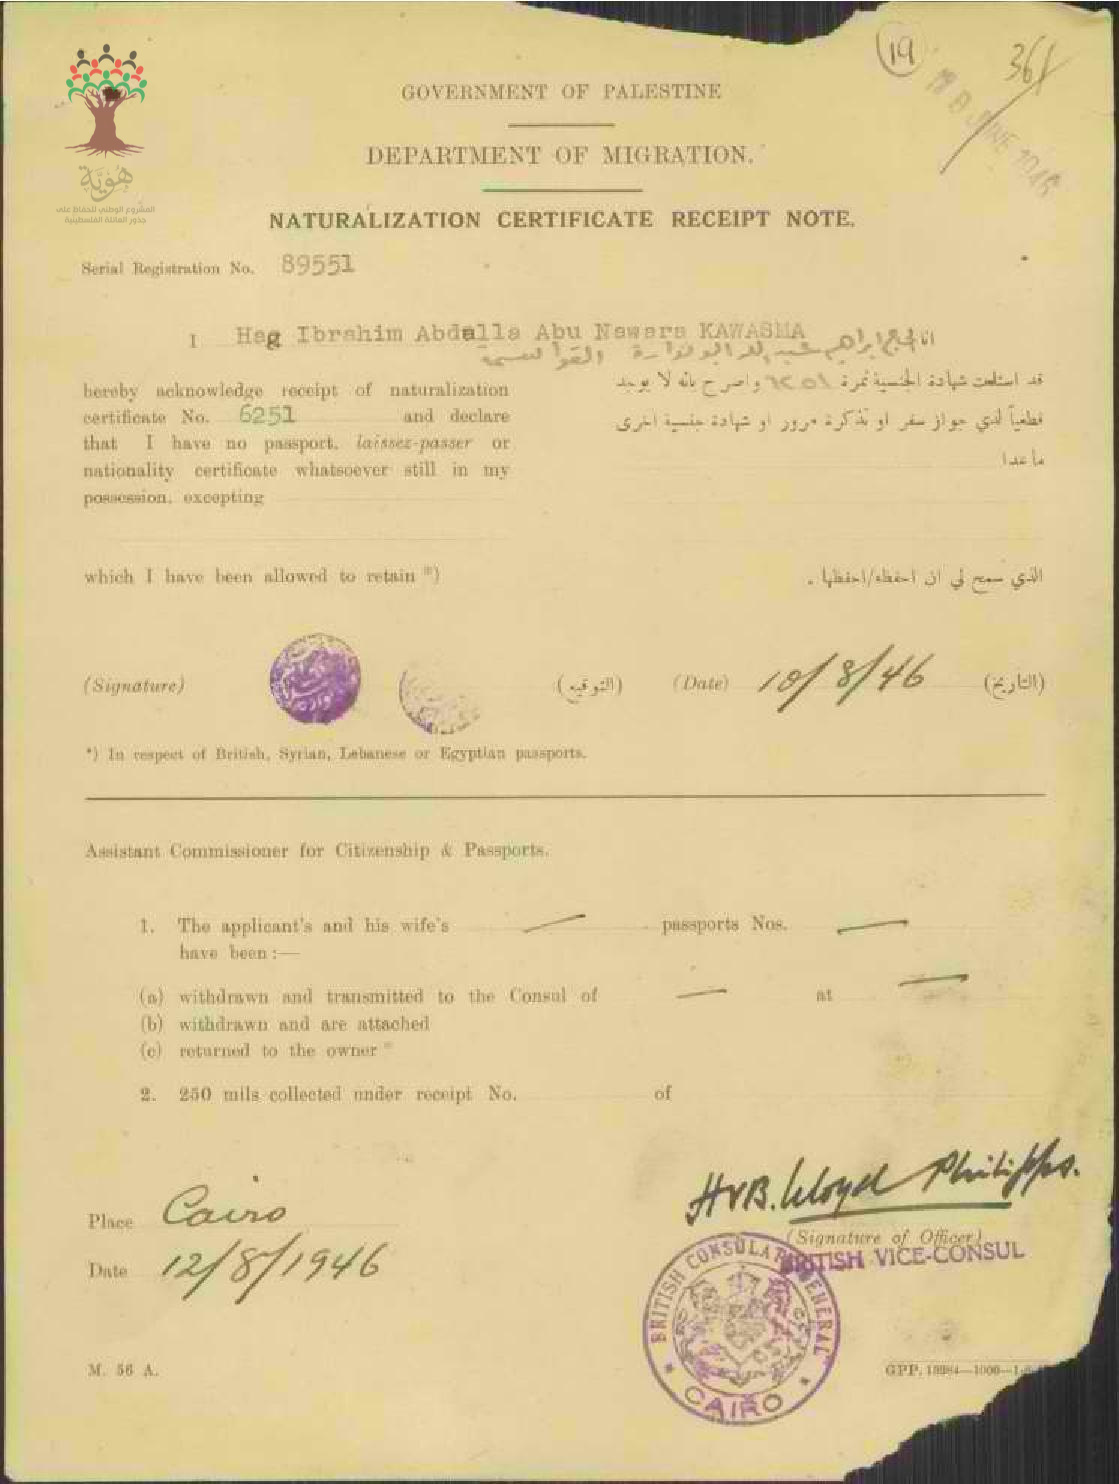 19
36/
19 JUNE 194
هُوِيَّة
المشروع الوطني للحفاظ على
جذور العائلة الفلسطينية
GOVERNMENT OF PALESTINE
DEPARTMENT OF MIGRATION.
NATURALIZATION CERTIFICATE RECEIPT NOTE.
Serial Registration No. 89551
I Hag Ibrahim Abdalla Abu Nawara KAWASMA
انا الحج ابراهيم عبد الله ابو نوارة القواسمة
hereby acknowledge receipt of naturalization
certificate No. 6251 and declare
that I have no passport, laissez-passer or
nationality certificate whatsoever still in my
possession, excepting
قد استلمت شهادة الجنسية نمرة ٦٢٥١ واصرح بانه لا يوجد
قطعياً لدي جواز سفر او تذكرة مرور او شهادة جنسية اخرى
ما عدا
which I have been allowed to retain *)
الذي سمح لي ان احفظه/احفظها .
(Signature) (التوقيع) (Date) 10/8/46 (التاريخ)
*) In respect of British, Syrian, Lebanese or Egyptian passports.
Assistant Commissioner for Citizenship & Passports.
1. The applicant's and his wife's — passports Nos. —
have been :—
(a) withdrawn and transmitted to the Consul of — at —
(b) withdrawn and are attached
(c) returned to the owner *
2. 250 mils collected under receipt No. of
HvB. Lloyd Philipps.
Place Cairo
(Signature of Officer)
BRITISH VICE-CONSUL
Date 12/8/1946
BRITISH CONSULATE GENERAL
CAIRO
M. 56 A.
GPP. 13984—1000—1-6-